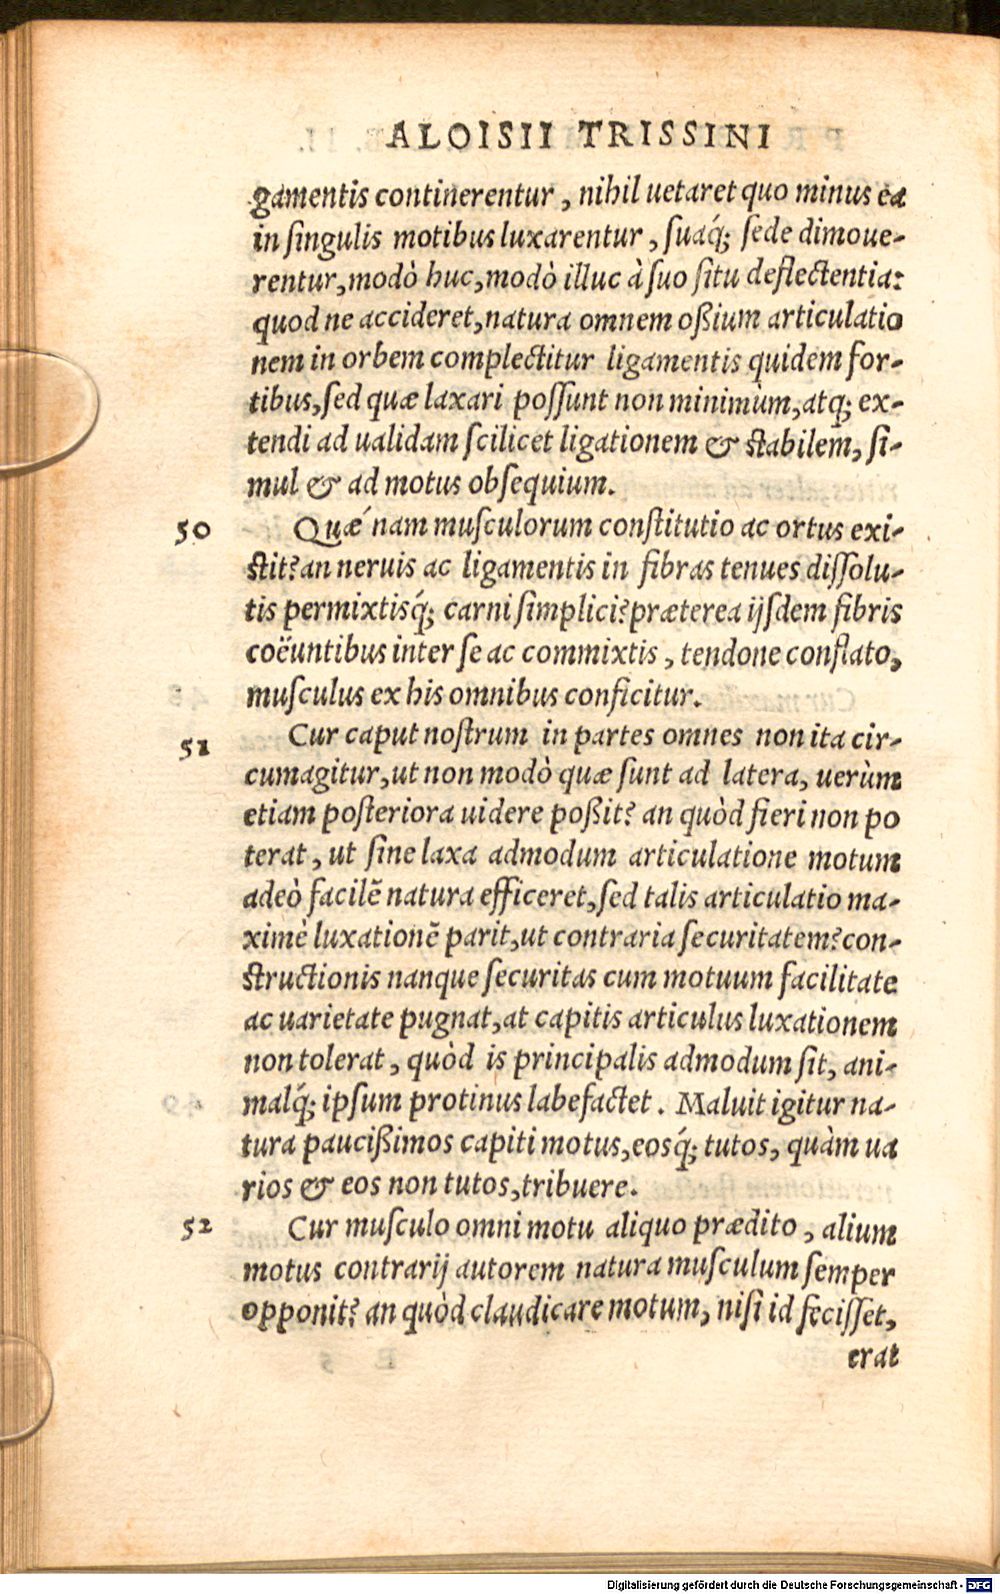 ALOISII TRISSINI
gamentis continerentur, nihil uetaret quo minus ea
in singulis motibus luxarentur, suaq́; sede dimoue-
rentur, modò huc, modò illuc à suo situ deflectentia:
quod ne accideret, natura omnem oßium articulatio
nem in orbem complectitur ligamentis quidem for-
tibus, sed quæ laxari possunt non minimùm, atq; ex-
tendi ad ualidam scilicet ligationem & stabilem, si-
mul & ad motus obsequium.
50 Quæ´nam musculorum constitutio ac ortus exi-
stit? an neruis ac ligamentis in fibras tenues dissolu-
tis permixtisq́; carni simplici? præterea ijsdem fibris
coëuntibus inter se ac commixtis, tendone conflato,
musculus ex his omnibus conficitur.
51 Cur caput nostrum in partes omnes non ita cir-
cumagitur, ut non modò quæ sunt ad latera, uerùm
etiam posteriora uidere poßit? an quòd fieri non po
terat, ut sine laxa admodum articulatione motum
adeò facilẽ natura efficeret, sed talis articulatio ma-
ximè luxationẽ parit, ut contraria securitatem? con-
structionis nanque securitas cum motuum facilitate
ac uarietate pugnat, at capitis articulus luxationem
non tolerat, quòd is principalis admodum sit, ani-
malq́; ipsum protinus labefactet. Maluit igitur na-
tura paucißimos capiti motus, eosq́; tutos, quàm ua
rios & eos non tutos, tribuere.
52 Cur musculo omni motu aliquo prædito, alium
motus contrarij autorem natura musculum semper
opponit? an quòd claudicare motum, nisi id fecisset,
erat
Digitalisierung gefördert durch die Deutsche Forschungsgemeinschaft - DFG